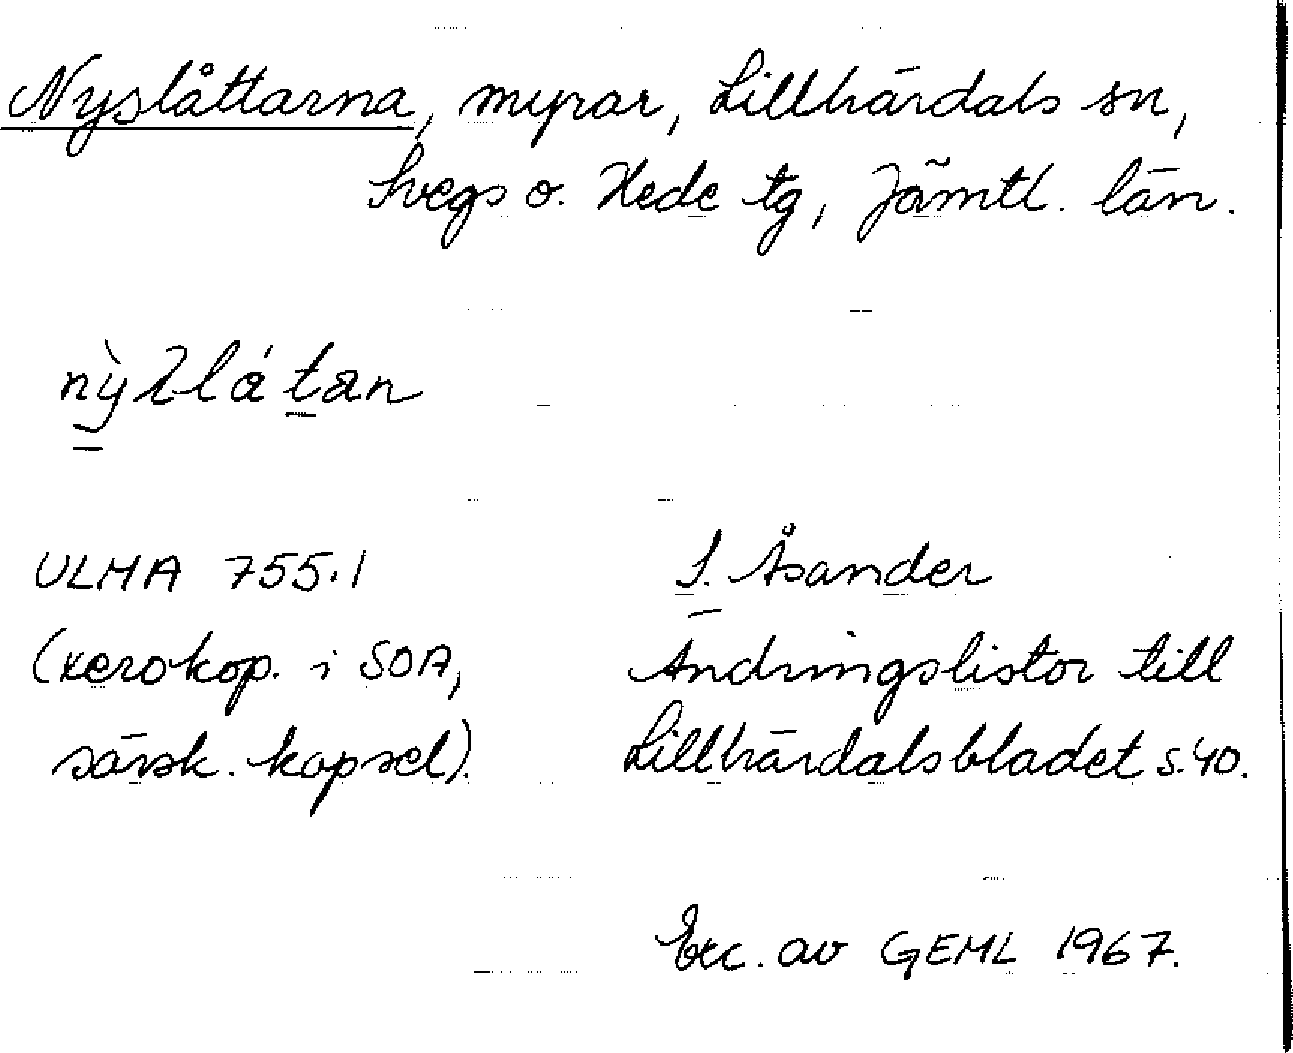 Nyslåttarna, myrar, Lillhärdals sn,
Svegs o. Hede tg, Jämtl. län.
ULMA 755.1
S. Åsander
(xerokop. i SOA,
Ändringslistor till
särsk. kapsel).
Lillhärdalsbladet s.40.
Exc. av GEML 1967.